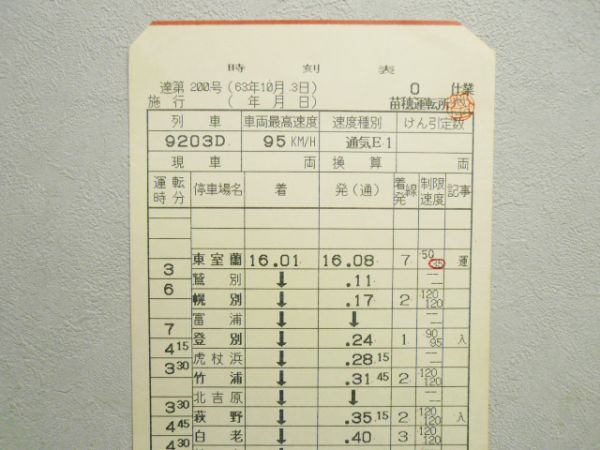 時刻表
達第 200号 (63年10月.3日) 0 仕業
施行 ( 年 月 日) 苗穂運転所
列車 車両最高速度 速度種別 けん引定数
9203D 95KM/H 通気E1
現車 両 換算 両
運転時分 停車場名 着 発(通) 着発線 制限速度 記事
東室蘭 16.01 16.08 7 50 35 運
3 鷲別 ↓ .11 ― ―
6 幌別 ↓ .17 2 120 120
富浦 ↓ ↓ ― ―
7 登別 ↓ .24 1 90 95 入
4 15 虎杖浜 ↓ .28 15 ― ―
3 30 竹浦 ↓ .31 45 2 120 120
北吉原 ↓ ↓ ― ―
3 30 萩野 ↓ .35 15 2 120 120 入
4 45 白老 ↓ .40 3 120 120
4 30